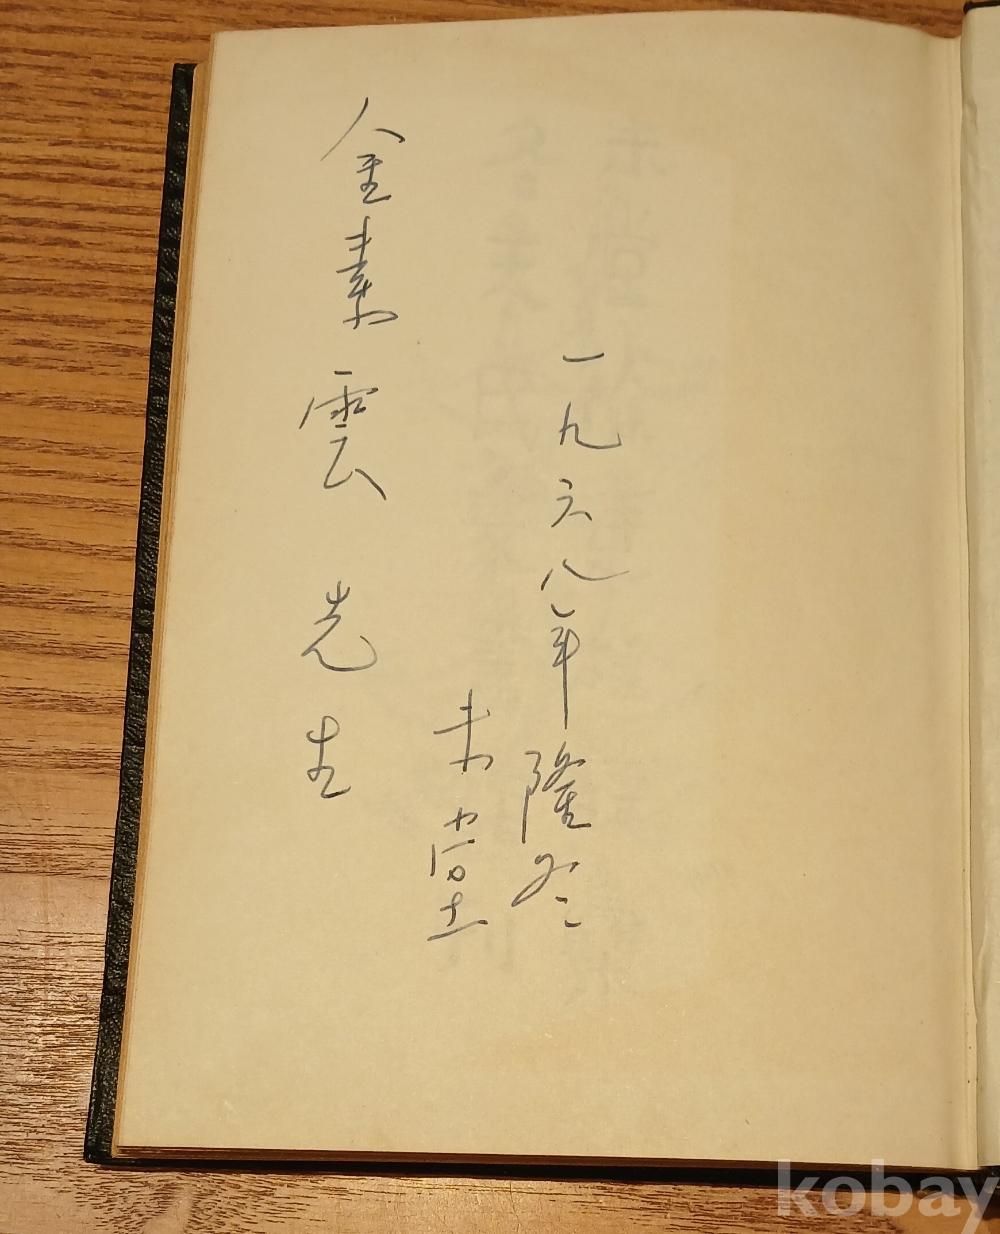 一九六八年隆冬
未堂
金素雲 先生
kobay